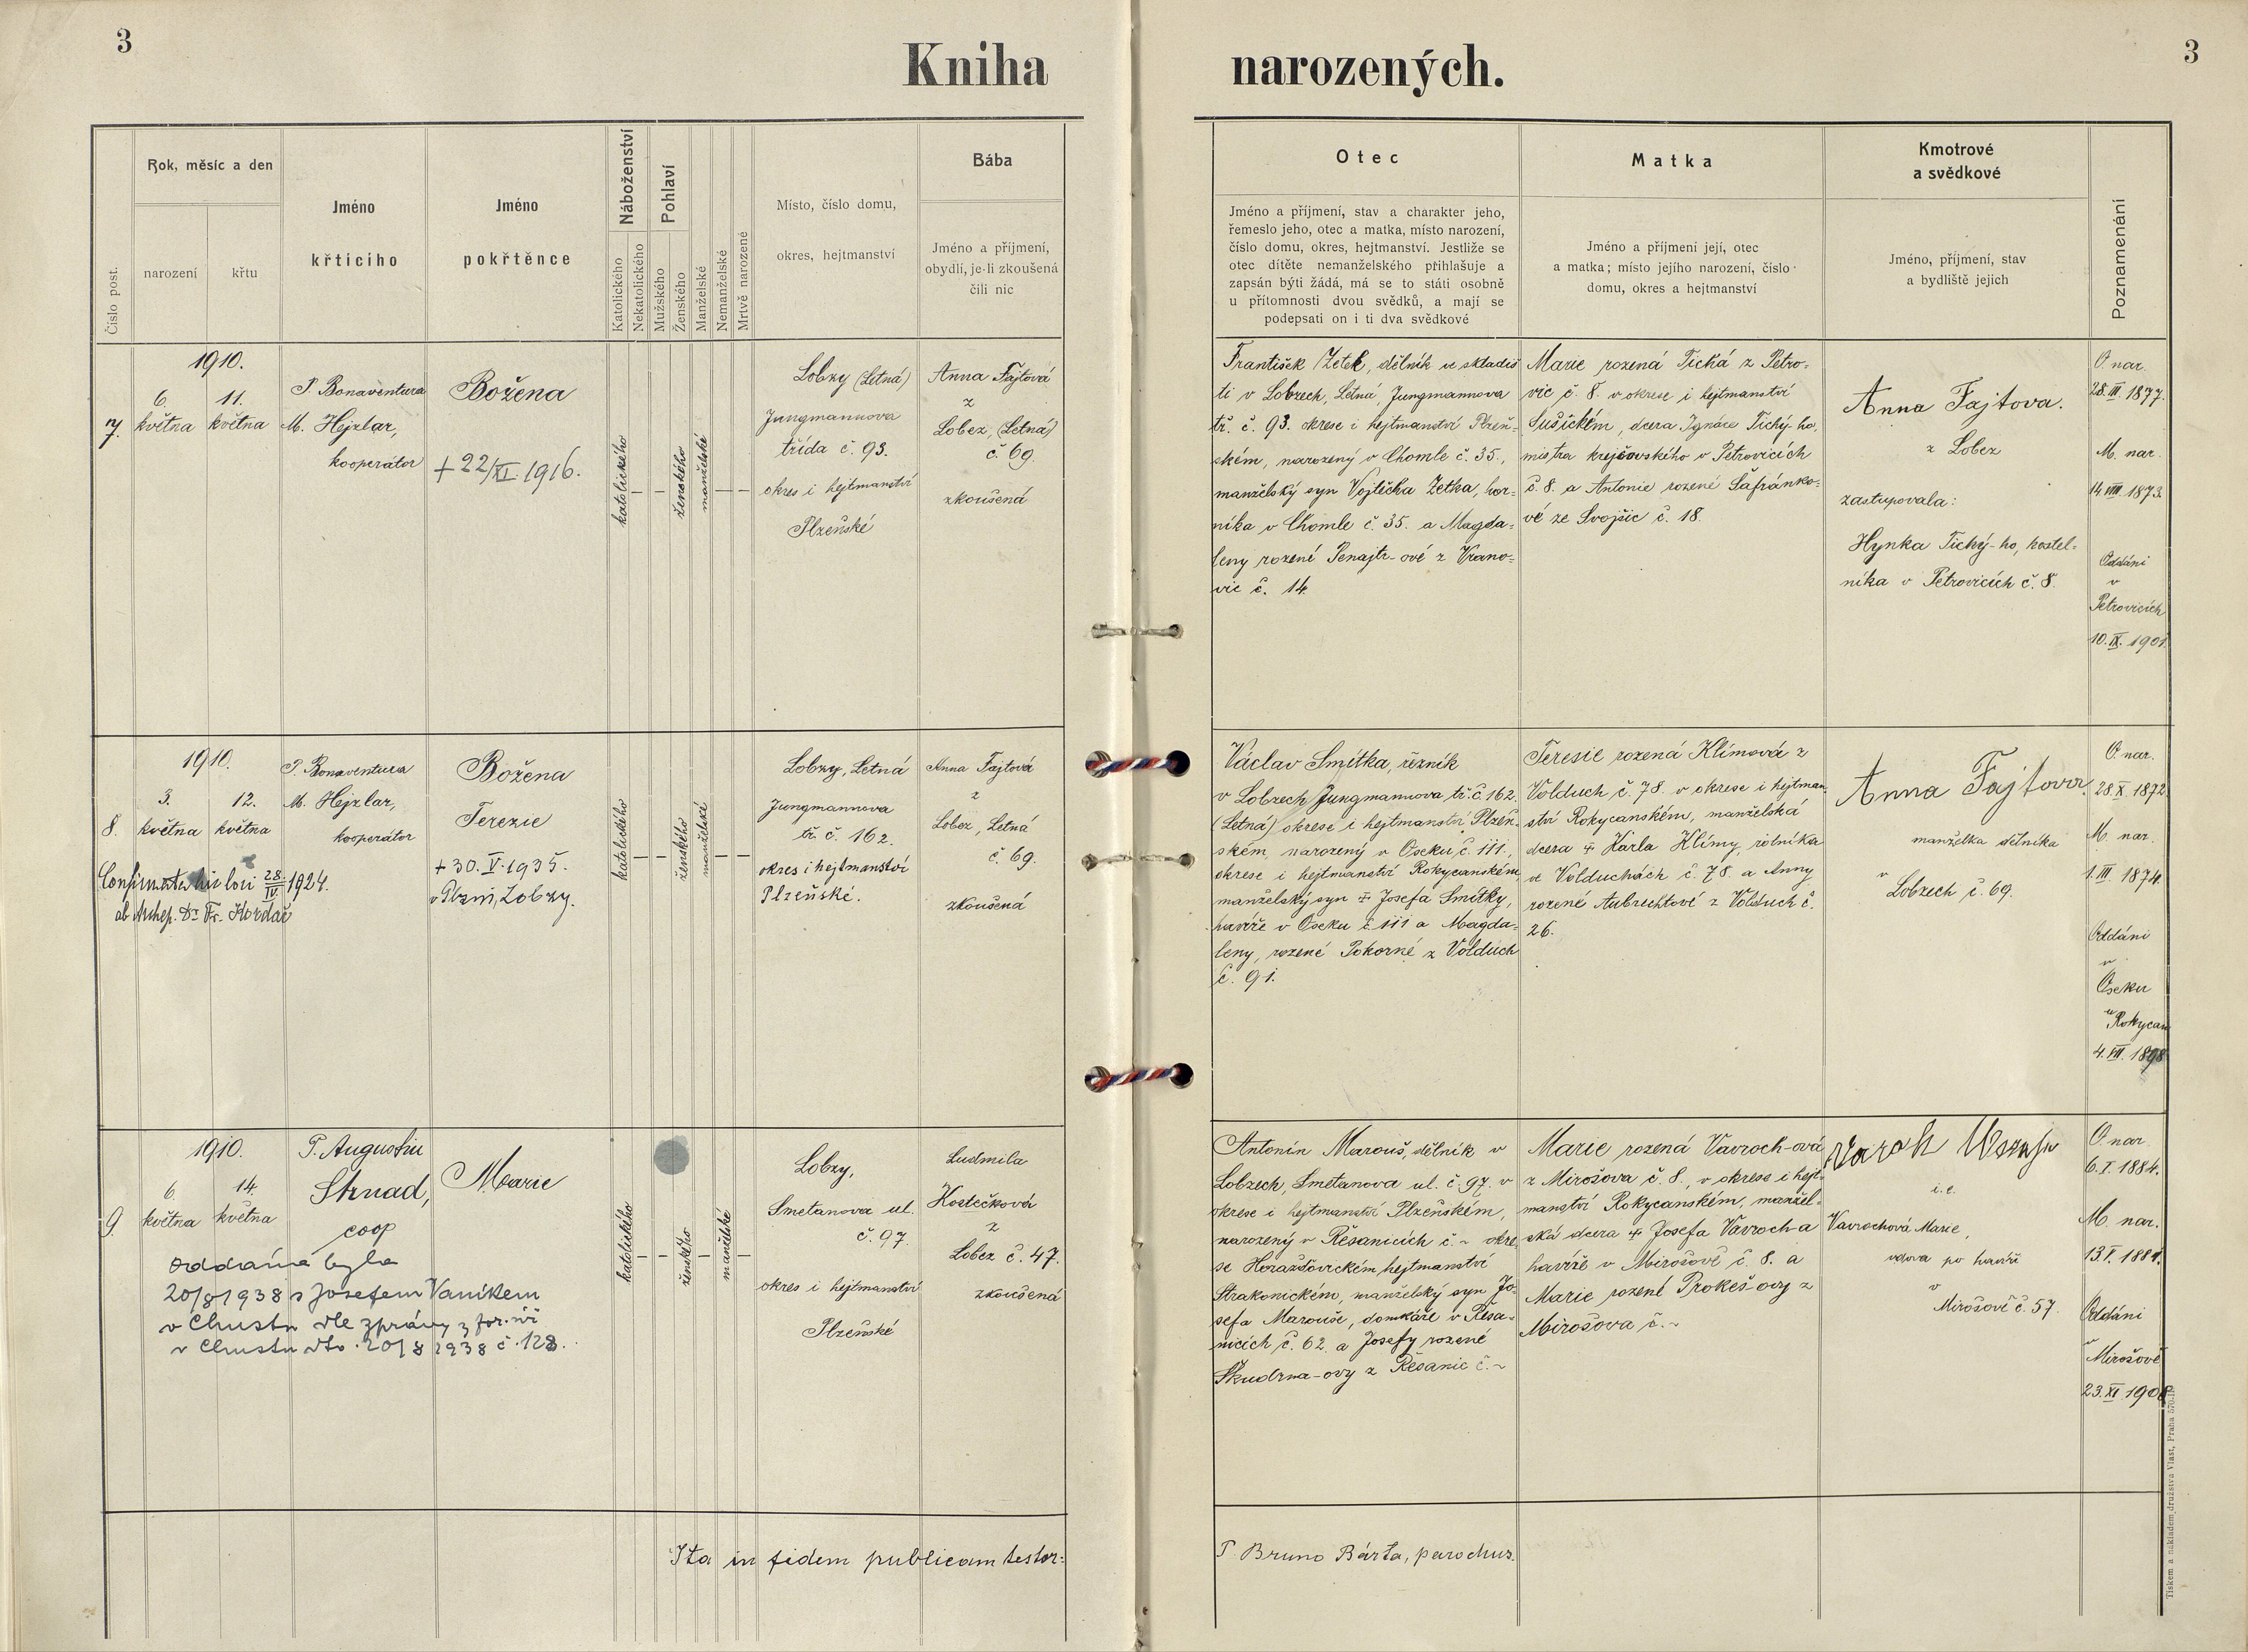 3
Kniha narozených.
3
Číslo post.
Rok, měsíc a den
narození
křtu
Jméno
křtícího
Jméno
pokřtěnce
Náboženství
Katolického
Nekatolického
Pohlaví
Mužského
Ženského
Manželské
Nemanželské
Mrtvě narozené
Místo, číslo domu,
okres, hejtmanství
Bába
Jméno a příjmení,
obydlí, je-li zkoušená
čili nic
Otec
Jméno a příjmení, stav a charakter jeho,
řemeslo jeho, otec a matka, místo narození,
číslo domu, okres, hejtmanství. Jestliže se
otec dítěte nemanželského přihlašuje a
zapsán býti žádá, má se to státi osobně
u přítomnosti dvou svědků, a mají se
podepsati on i ti dva svědkové
Matka
Jméno a příjmení její, otec
a matka; místo jejího narození, číslo
domu, okres a hejtmanství
Kmotrové
a svědkové
Jméno, příjmení, stav
a bydliště jejich
Poznamenání
7.
1910.
6. května
11. května
P. Bonaventura
M. Hejzlar,
kooperátor
Božena
+ 22/XI 1916.
katolického
ženského
manželské
Lobzy (Letná)
Jungmannova
třída č. 93.
okres i hejtmanství
Plzeňské
Anna Fajtová
z
Lobez, (Letná)
č. 69.
zkoušená
František Zetek, dělník ve skladiš
ti v Lobzech, Letná, Jungmannova
tř. č. 93. okrese i hejtmanství Plzeň-
ském, narozený v Chomle č. 35.,
manželský syn Vojtěcha Zetka, hor-
níka v Chomle č. 35. a Magda=
leny rozené Penajtr-ové z Vrano=
vic č. 14.
Marie rozená Tichá z Petro-
vic č. 8. v okrese i hejtmanství
Sušickém, dcera Ignáce Tichý-ho,
mistra krejčovského v Petrovicích
č. 8. a Antonie rozené Šafránko=
vé ze Svojšic č. 18.
Anna Fajtova.
z Lobez
zastupovala:
Hynka Tichý-ho, kostel=
níka v Petrovicích č. 8.
O. nar.
28. III. 1877.
M. nar.
14. VIII. 1873.
Oddáni
v
Petrovicích
10. IX. 1901.
8.
1910.
3. května
12. května
P. Bonaventura
M. Hejzlar,
kooperátor
Confirmata loci 28./IV. 1924.
ab Archep. Dr Fr. Kordač
Božena
Terezie
+ 30. V. 1935.
v Plzni, Lobzy.
katolického
ženského
manželské
Lobzy, Letná
Jungmannova
tř. č. 162.
okres i hejtmanství
Plzeňské.
Anna Fajtová
z
Lobez, Letná
č. 69.
zkoušená
Václav Smítka, řezník
v Lobzech Jungmannova tř. č. 162.
(Letná) okrese i hejtmanství Plzeň-
ském, narozený v Oseku č. 111.,
okrese i hejtmanství Rokycanském,
manželský syn + Josefa Smítky,
havíře v Oseku č. 111 a Magda=
leny, rozené Pokorné z Volduch
č. 91.
Teresie rozená Klímová z
Volduch č. 78. v okrese i hejtman-
ství Rokycanském, manželská
dcera + Karla Klímy, rolníka
ve Volduchách č. 78. a Anny
rozené Aubrechtové z Volduch č.
26.
Anna Fajtova
manželka dělníka
v
Lobzech č. 69.
O. nar.
28. X. 1872.
M. nar.
1. III. 1874.
Oddáni
v
Oseku
u Rokycan
4. VII. 1898
9.
1910.
6. května
14. května
P. Augustin
Strnad,
coop
Marie
oddána byla
20/8 1938 s Josefem Vaníkem
v Chustu dle zprávy z for. úř
v Chustu dto. 20/8 1938 č. 128.
katolického
ženského
manželské
Lobzy,
Smetanova ul.
č. 97.
okres i hejtmanství
Plzeňské
Ludmila
Kostečková
z
Lobez č. 47.
zkoušená
Antonín Marouš, dělník v
Lobzech, Smetanova ul. č. 97. v
okrese i hejtmanství Plzeňském,
narozený v Řesanicích č. ~ okre-
se Horažďovickém hejtmanství
Strakonickém, manželský syn Jo-
sefa Marouše, domkáře v Řesa-
nicích č. 62. a Josefy rozené
Škudrna-ovy z Řesanic č. ~
Marie rozená Vavroch-ová
z Mirošova č. 8., v okrese i hejt-
manství Rokycanském, manžel-
ská dcera + Josefa Vavroch-a
havíře v Mirošově č. 8. a
Marie rozené Prokeš-ovy z
Mirošova č. ~
i. e.
Vavrochová Marie,
vdova po havíři
v
Mirošově č. 57.
O. nar.
6. I. 1884.
M. nar.
13. I. 1884.
Oddáni
v
Mirošově
23. XI. 1908
Ita in fidem publicam testor:
P. Bruno Bárta, parochus.
Tiskem a nákladem družstva Vlast, Praha